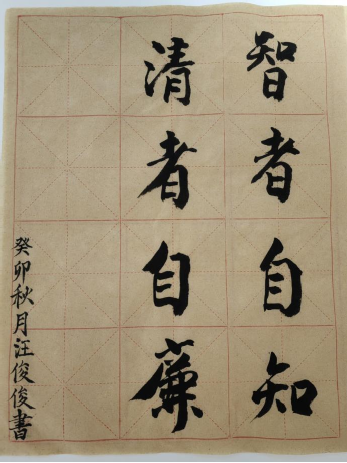 智者自知
清者自廉
癸卯秋月汪俊俊書